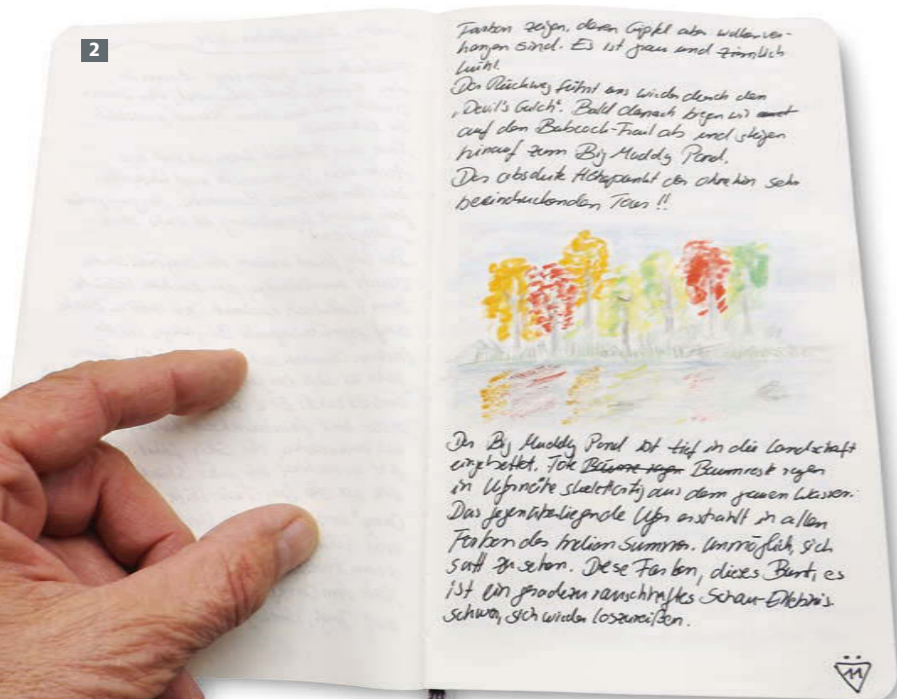 2
Farben zeigen, deren Gipfel aber wolkenver-
hangen sind. Es ist grau und ziemlich
kühl.
Der Rückweg führt uns wieder durch den
„Devil's Gulch“. Bald danach biegen wir
auf den Babcock-Trail ab und steigen
hinauf zum Big Muddy Pond.
Der absolute Höhepunkt der ohnehin sehr
beeindruckenden Tour !!
Der Big Muddy Pond ist tief in die Landschaft
eingebettet. Tote Bäume ragen Baumreste ragen
in Ufernähe skelettartig aus dem grauen Wasser.
Das gegenüberliegende Ufer erstrahlt in allen
Farben des Indian Summer. Unmöglich, sich
satt zu sehen. Diese Farben, dieses Bunt, es
ist ein geradezu rauschhaftes Schau-Erlebnis
schwer, sich wieder loszureißen.